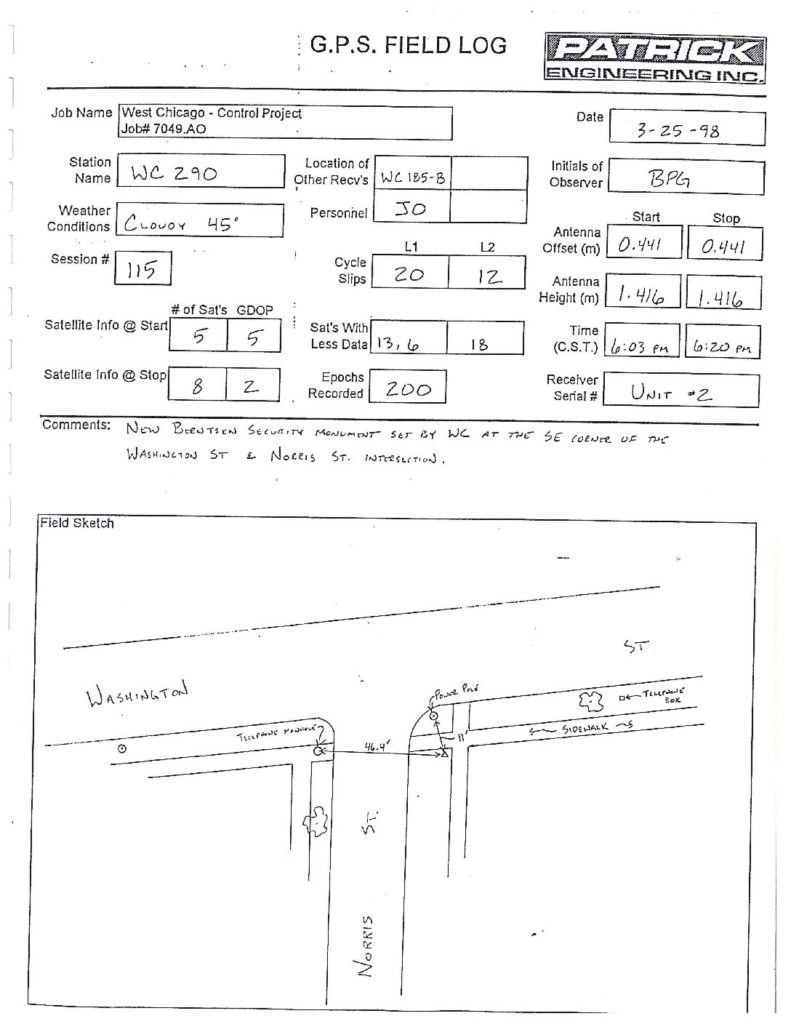 G.P.S. FIELD LOG
PATRICK
ENGINEERING INC.
Job Name West Chicago - Control Project
Job# 7049.AO
Date 3-25-98
Station Name WC 290
Location of Other Recv's WC 185-B
Initials of Observer BPG
Weather Conditions CLOUDY 45°
Personnel JO
Start Stop
Antenna Offset (m) 0.441 0.441
Session # 115
L1 L2
Cycle Slips 20 12
Antenna Height (m) 1.416 1.416
# of Sat's GDOP
Satellite Info @ Start 5 5
Sat's With Less Data 13, 6 18
Time (C.S.T.) 6:03 PM 6:20 PM
Satellite Info @ Stop 8 2
Epochs Recorded 200
Receiver Serial # UNIT #2
Comments: NEW BERNTSEN SECURITY MONUMENT SET BY WC AT THE SE CORNER OF THE
WASHINGTON ST & NORRIS ST. INTERSECTION.
Field Sketch
ST
WASHINGTON
POWER POLE
TELEPHONE
BOX
TELEPHONE MANHOLE
SIDEWALK
11'
46.4'
ST.
NORRIS